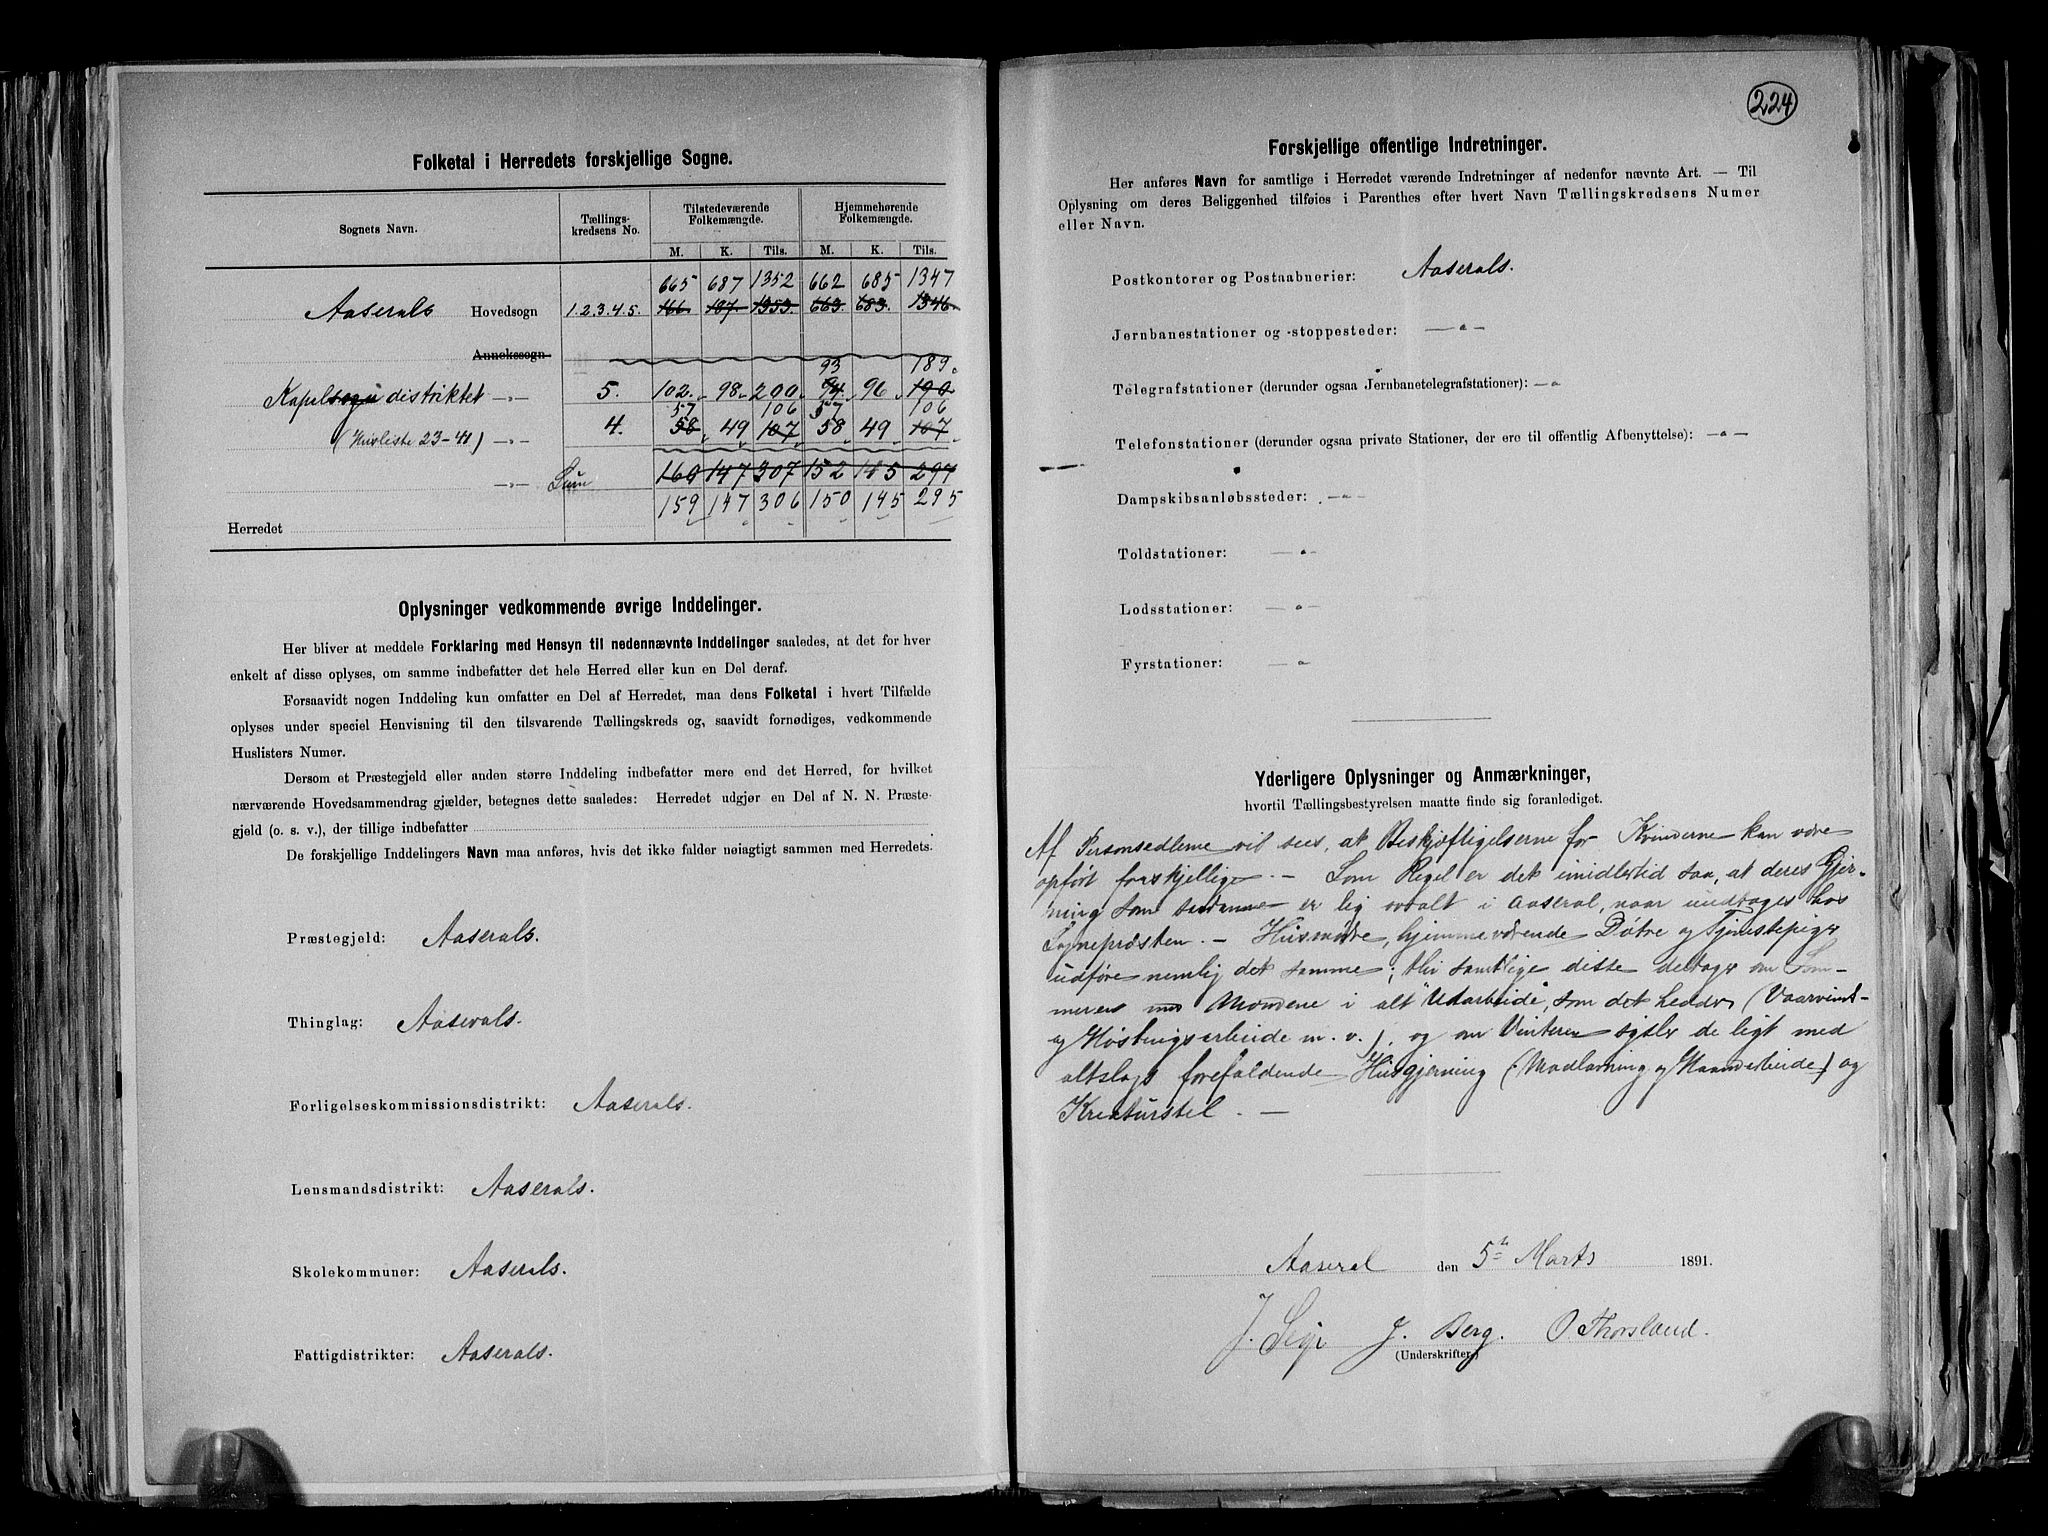 Folketal i Herredets forskjellige Sogne.
Sognets Navn. Tællings-kredsens No. Tilstedeværende Folkemængde. Hjemmehørende Folkemængde.
M. K. Tils. M. K. Tils.
665 687 1352 662 685 1347
Aaserals Hovedsogn 1.2.3.4.5. 166 187 1353 663 683 1346
Annekssogn
93 189
Kapelsogn distriktet 5. 102 98 200 94 96 190
57 106 57 106
(Husliste 23-41) 4. 58 49 107 58 49 107
Sum 160 147 307 152 145 297
159 147 306 150 145 295
Herredet
Oplysninger vedkommende øvrige Inddelinger.
Her bliver at meddele Forklaring med Hensyn til nedennævnte Inddelinger saaledes, at det for hver
enkelt af disse oplyses, om samme indbefatter det hele Herred eller kun en Del deraf.
Forsaavidt nogen Inddeling kun omfatter en Del af Herredet, maa dens Folketal i hvert Tilfælde
oplyses under speciel Henvisning til den tilsvarende Tællingskreds og, saavidt fornødiges, vedkommende
Huslisters Numer.
Dersom et Præstegjeld eller anden større Inddeling indbefatter mere end det Herred, for hvilket
nærværende Hovedsammendrag gjælder, betegnes dette saaledes: Herredet udgjør en Del af N. N. Præste-
gjeld (o. s. v.), der tillige indbefatter
De forskjellige Inddelingers Navn maa anføres, hvis det ikke falder nøiagtigt sammen med Herredets.
Præstegjeld: Aaserals.
Thinglag: Aaserals.
Forligelseskommissionsdistrikt: Aaserals.
Lensmandsdistrikt: Aaserals.
Skolekommuner: Aaserals.
Fattigdistrikter: Aaserals.
224
Forskjellige offentlige Indretninger.
Her anføres Navn for samtlige i Herredet værende Indretninger af nedenfor nævnte Art. — Til
Oplysning om deres Beliggenhed tilføies i Parenthes efter hvert Navn Tællingskredsens Numer
eller Navn.
Postkontorer og Postaabnerier: Aaserals.
Jernbanestationer og -stoppesteder: — " —
Telegrafstationer (derunder ogsaa Jernbanetelegrafstationer): — "
Telefonstationer (derunder ogsaa private Stationer, der ere til offentlig Afbenyttelse): — " —
Dampskibsanløbssteder: — " —
Toldstationer: — " —
Lodsstationer: — " —
Fyrstationer: — "
Yderligere Oplysninger og Anmærkninger,
hvortil Tællingsbestyrelsen maatte finde sig foranlediget.
Af Personsedlerne vil sees, at Beskjæftigelserne for Kvinderne kan være
opført forskjellige. — Som Regel er det imidlertid saa, at deres Gjer-
ning som saadanne er lig overalt i Aaseral, naar undtages hos
Sognepræsten. — Husmødre, hjemmeværende Døtre og Tjenestepiger
udføre nemlig det samme; thi samtlige disse deltager om Som-
meren med Mændene i alt "Udarbeide", som det hedder (Vaarvinds-
og Høstningsarbeide m. v.), og om Vinteren sysler de ligt med
alslags forefaldende Husgjerning (Madlavning og Haandarbeide) og
Kreaturstel. —
Aaseral den 5te Marts 1891.
J. Berg. O Thorsland.
(Underskrifter)